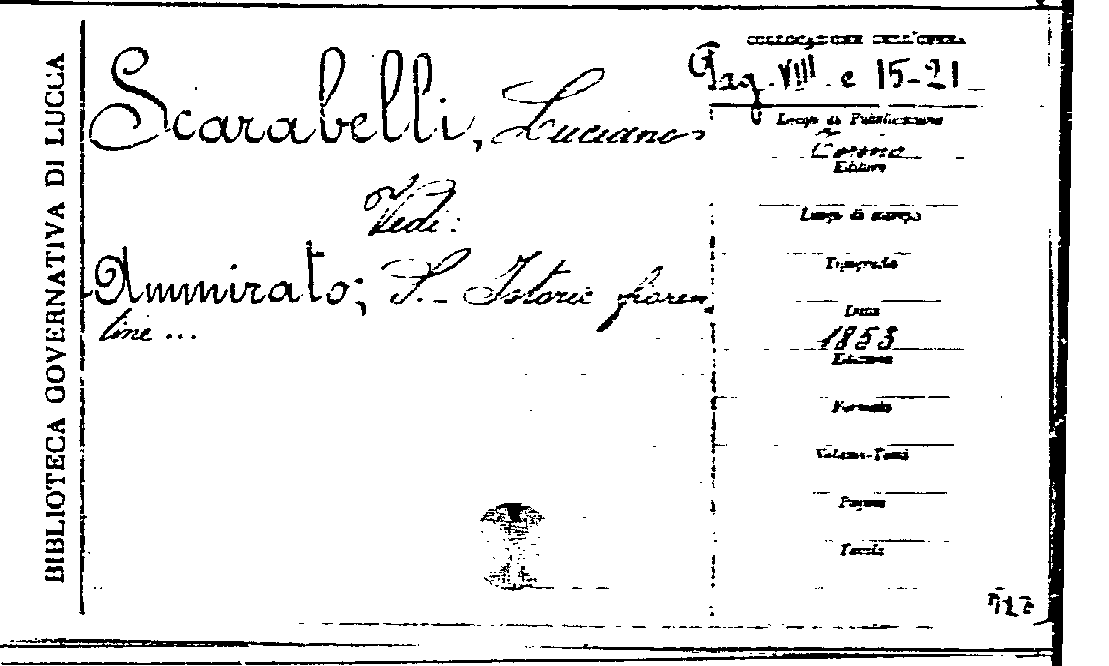 BIBLIOTECA GOVERNATIVA DI LUCCA
Scarabelli, Luciano
Vedi:
Ammirato; S. - Istorie fioren
tine ...
COLLOCAZIONE DELL'OPERA
Pag. VIII e 15-21
Luogo di Pubblicazione
Torino
Editore
Luogo di stampa
Tipografia
Data
1853
Edizione
Formato
Volume-Tomi
Pagine
Tavole